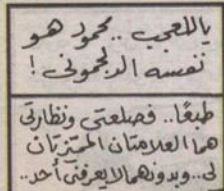 ياللعجب.. محمود هو
نفسه الدلجموني!
طبعًا.. فصلعتى ونظارتى
هما العلامتان المميزتان
لى.. وبدونهما لا يعرفنى أحد..